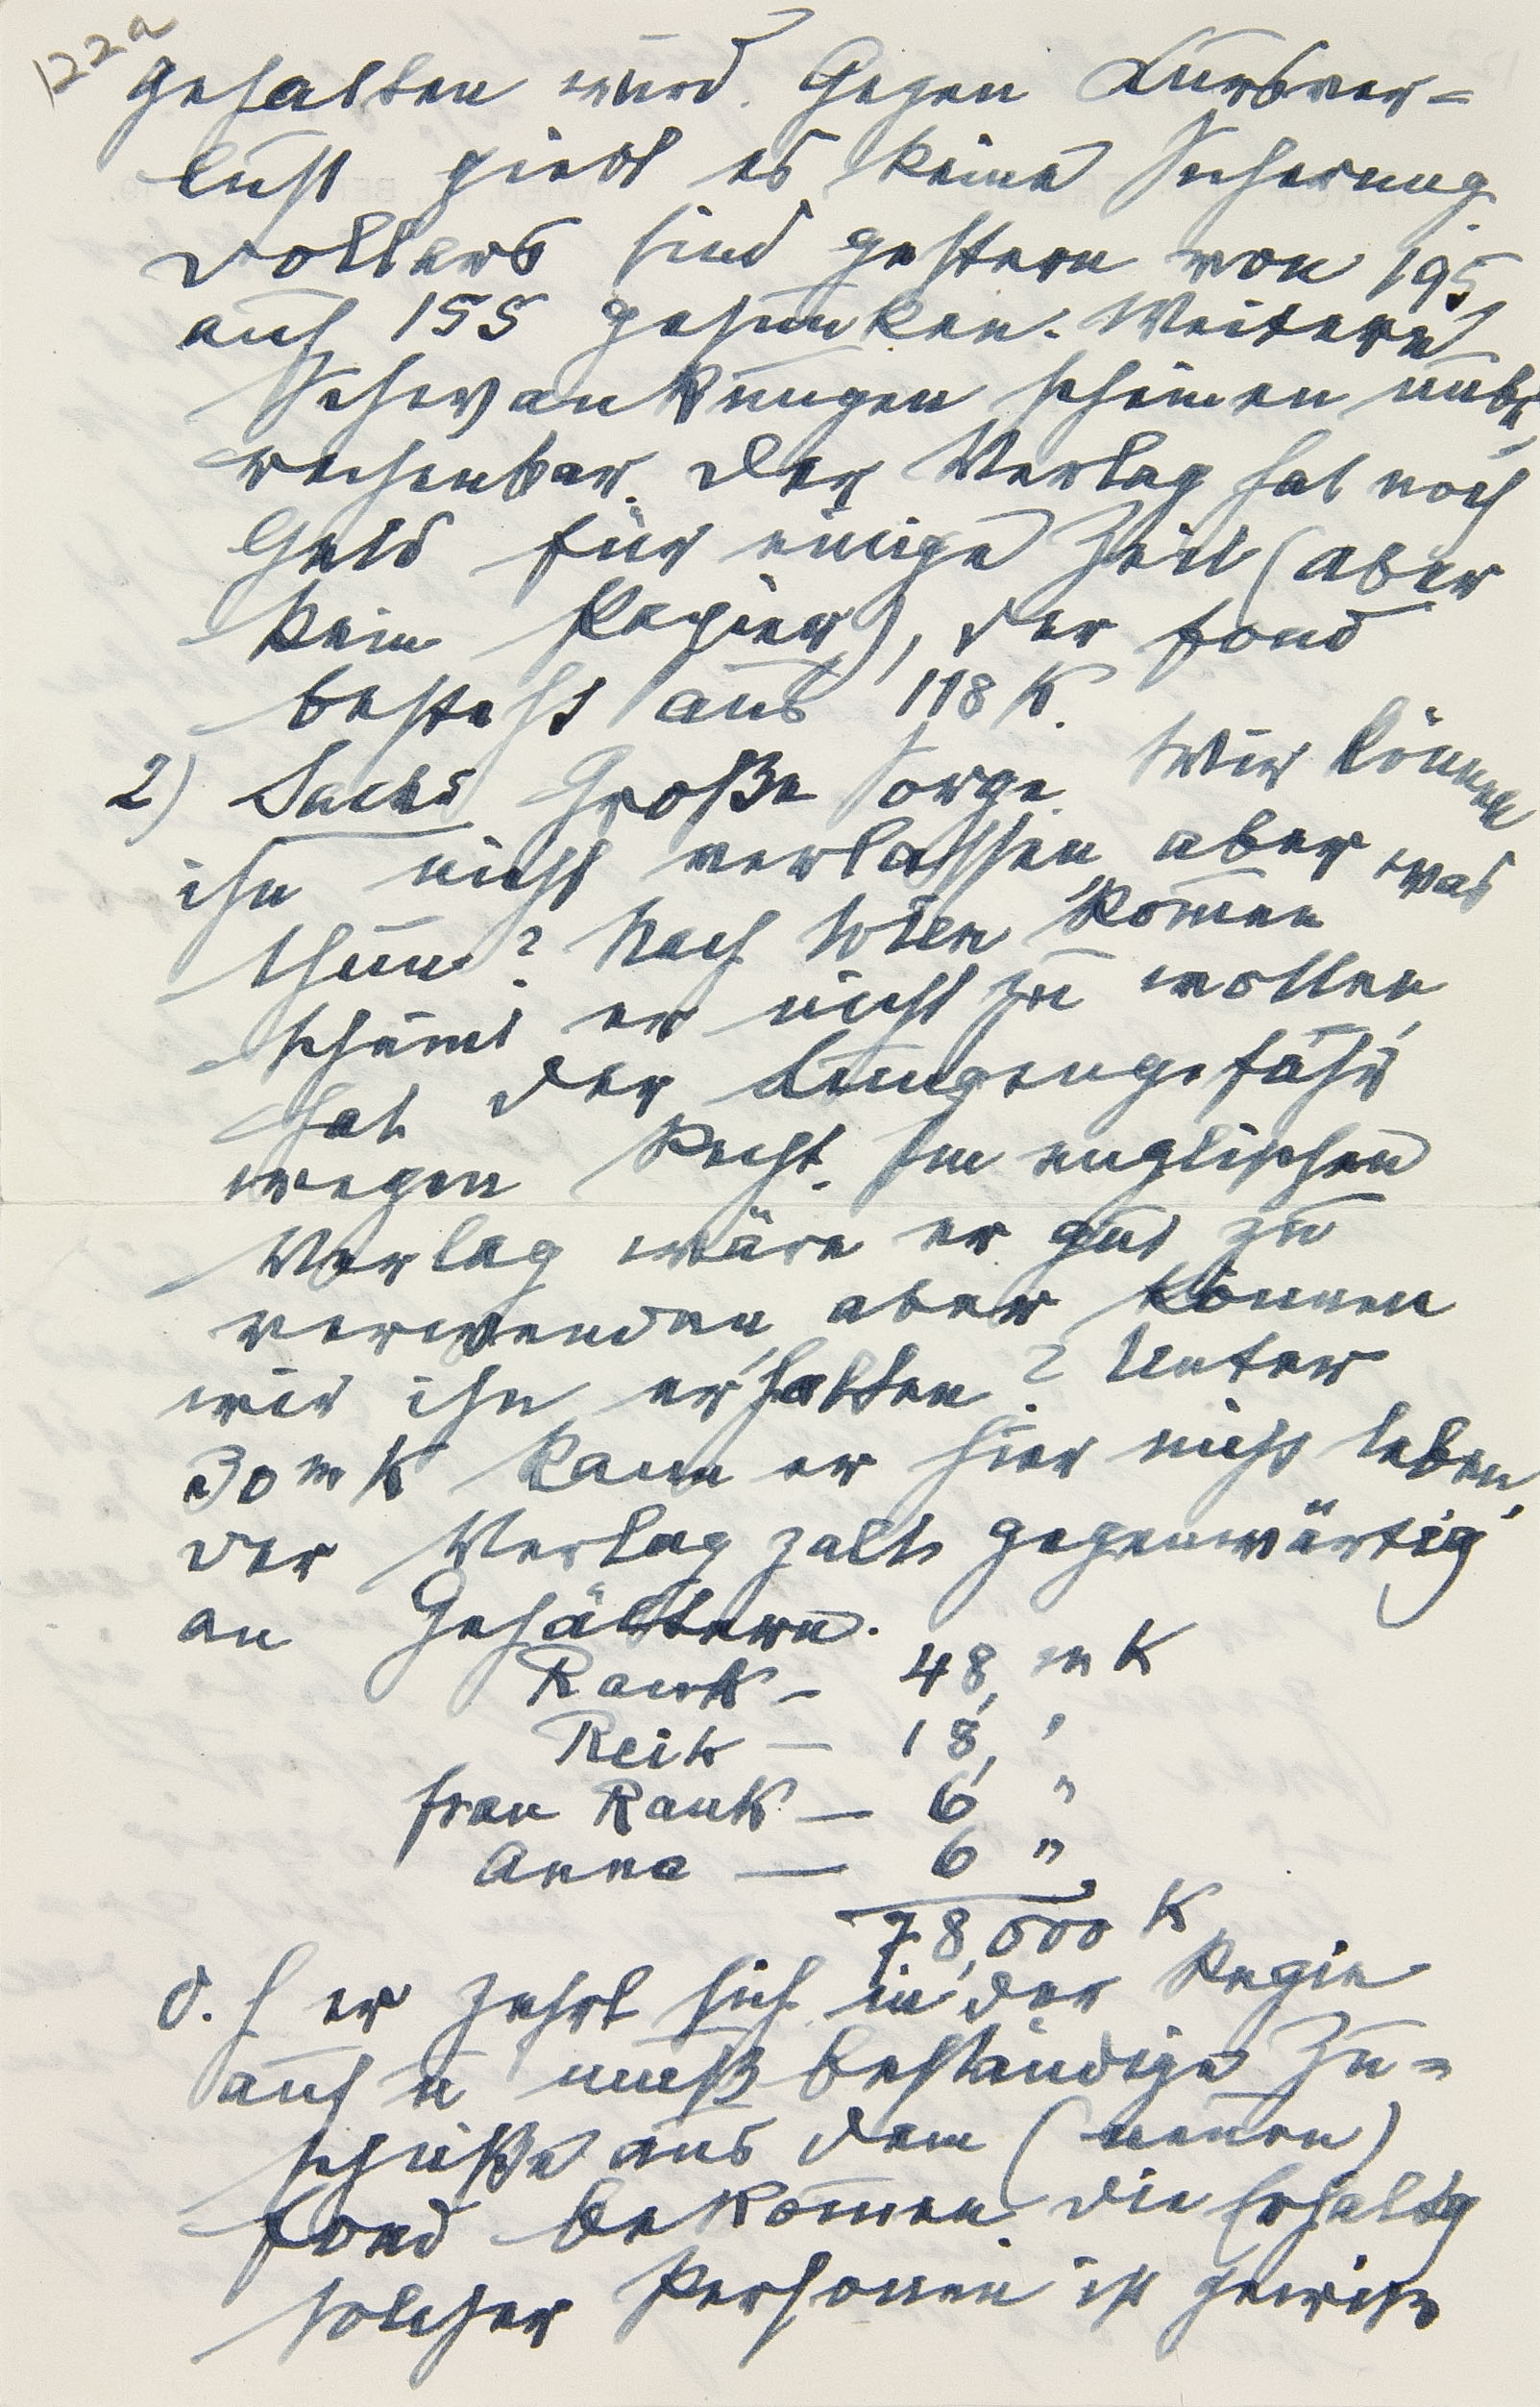 122a
gehalten wird. Gegen Kursver=
lust giebt es keine Sicherung.
Dollars sind gestern von 195
auf 155 gesunken. Weitere
Schwankungen scheinen unbe=
rechenbar. Der Verlag hat noch
Geld für einige Zeit (aber
kein Papier), der Fond
besteht aus 118 K.
2) Sachs Große Sorge. Wir können
ihn nicht verlassen, aber was
thun? Nach Wien kom̄en
scheint er nicht zu wollen,
hat der Lungengefahr
wegen Recht. Im englischen
Verlag wäre er gut zu
verwenden, aber können
wir ihn erhalten? Unter
30 m K kann er hier nicht leben,
der Verlag zalt gegenwärtig
an Gehältern.
Rank – 48, m K
Reik – 18, "
Frau Rank – 6 "
Anna – 6 "
78,000 K
d. h er zehrt sich in der Regie
auf u muß beständige Zu=
schüße aus dem (neuen)
Fond bekom̄en. Die Erhaltg
solcher Personen ist gewiß